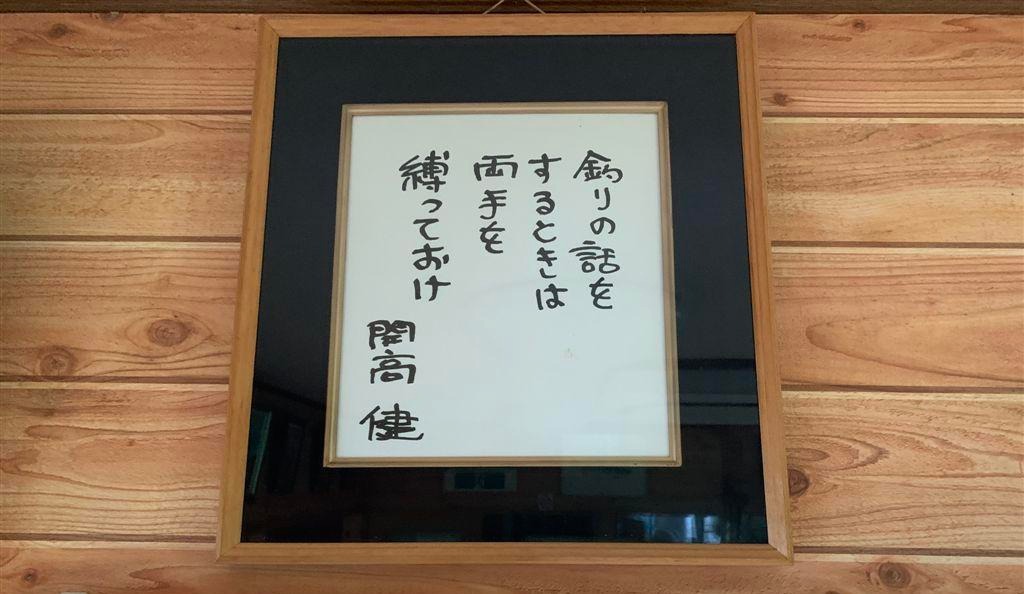 釣りの話を
するときは
両手を
縛っておけ
開高
健